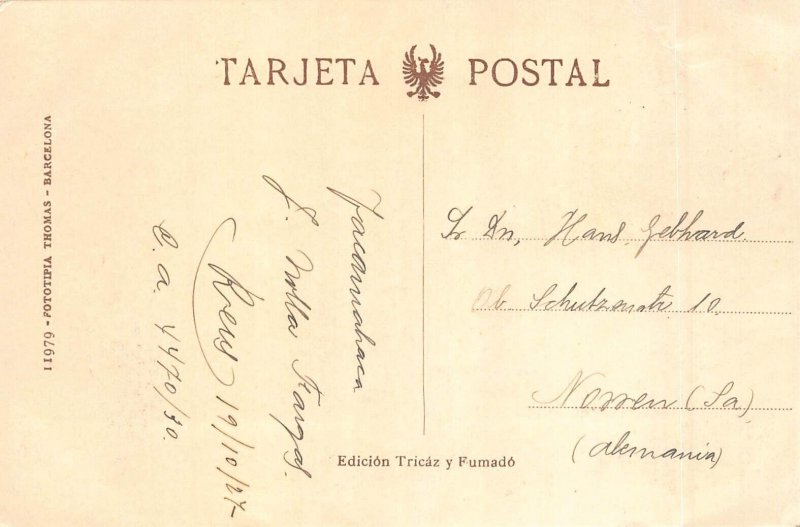 TARJETA POSTAL
11979 - FOTOTIPIA THOMAS - BARCELONA
J. Nolla Fargas.
Reus 19/10/27-
C. a. 4470/30.
Sr Dn, Hans Gebhard.
Ob. Schutzenstr 10.
Nossen (Sa)
(Alemania)
Edición Tricáz y Fumadó